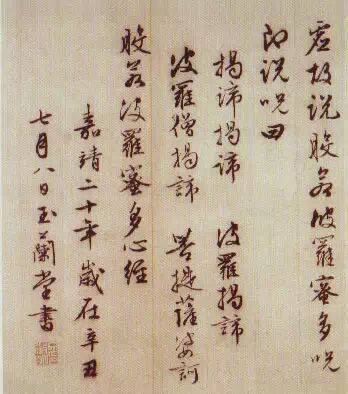 虚故说般若波羅蜜多呪
即说呪曰
揭諦揭諦 波羅揭諦
波羅僧揭諦 菩提薩婆訶
般若波羅蜜多心經
嘉靖二十年歲在辛丑
七月八日玉蘭堂書